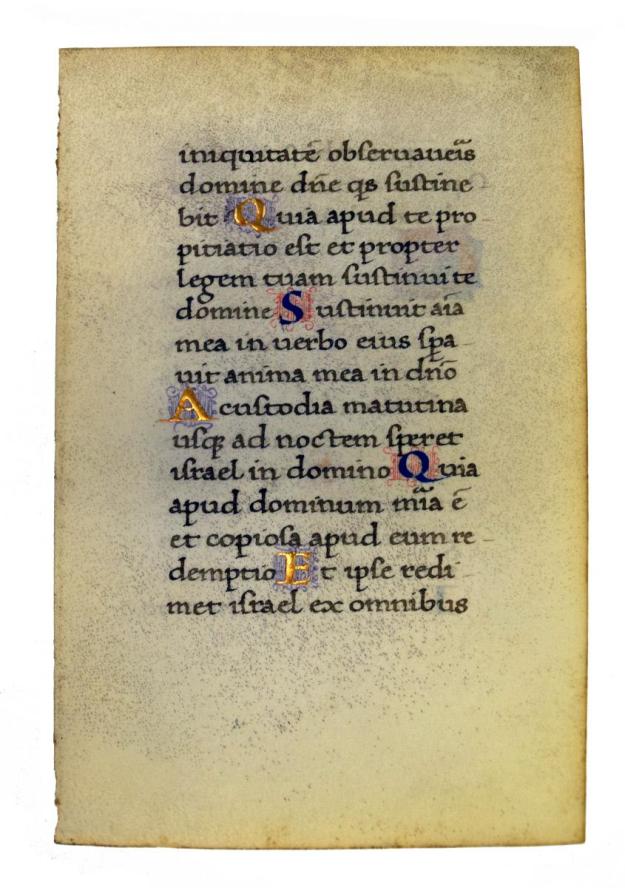 iniquitatē obſeruaueı̄s
domine dn̄e qs ſuſtine
bit Quia apud te pro
pitiatio eſt et propter
legem tuam ſuſtinui te
domine Suſtinuit aı̄a
mea in uerbo eius ſpa
uit anima mea in dn̄o
A cuſtodia matutina
uſqꝫ ad noctem ſperet
iſrael in domino Quia
apud dominum mı̄a ē
et copioſa apud eum re
demptio Et ipſe redi
met iſrael ex omnibus